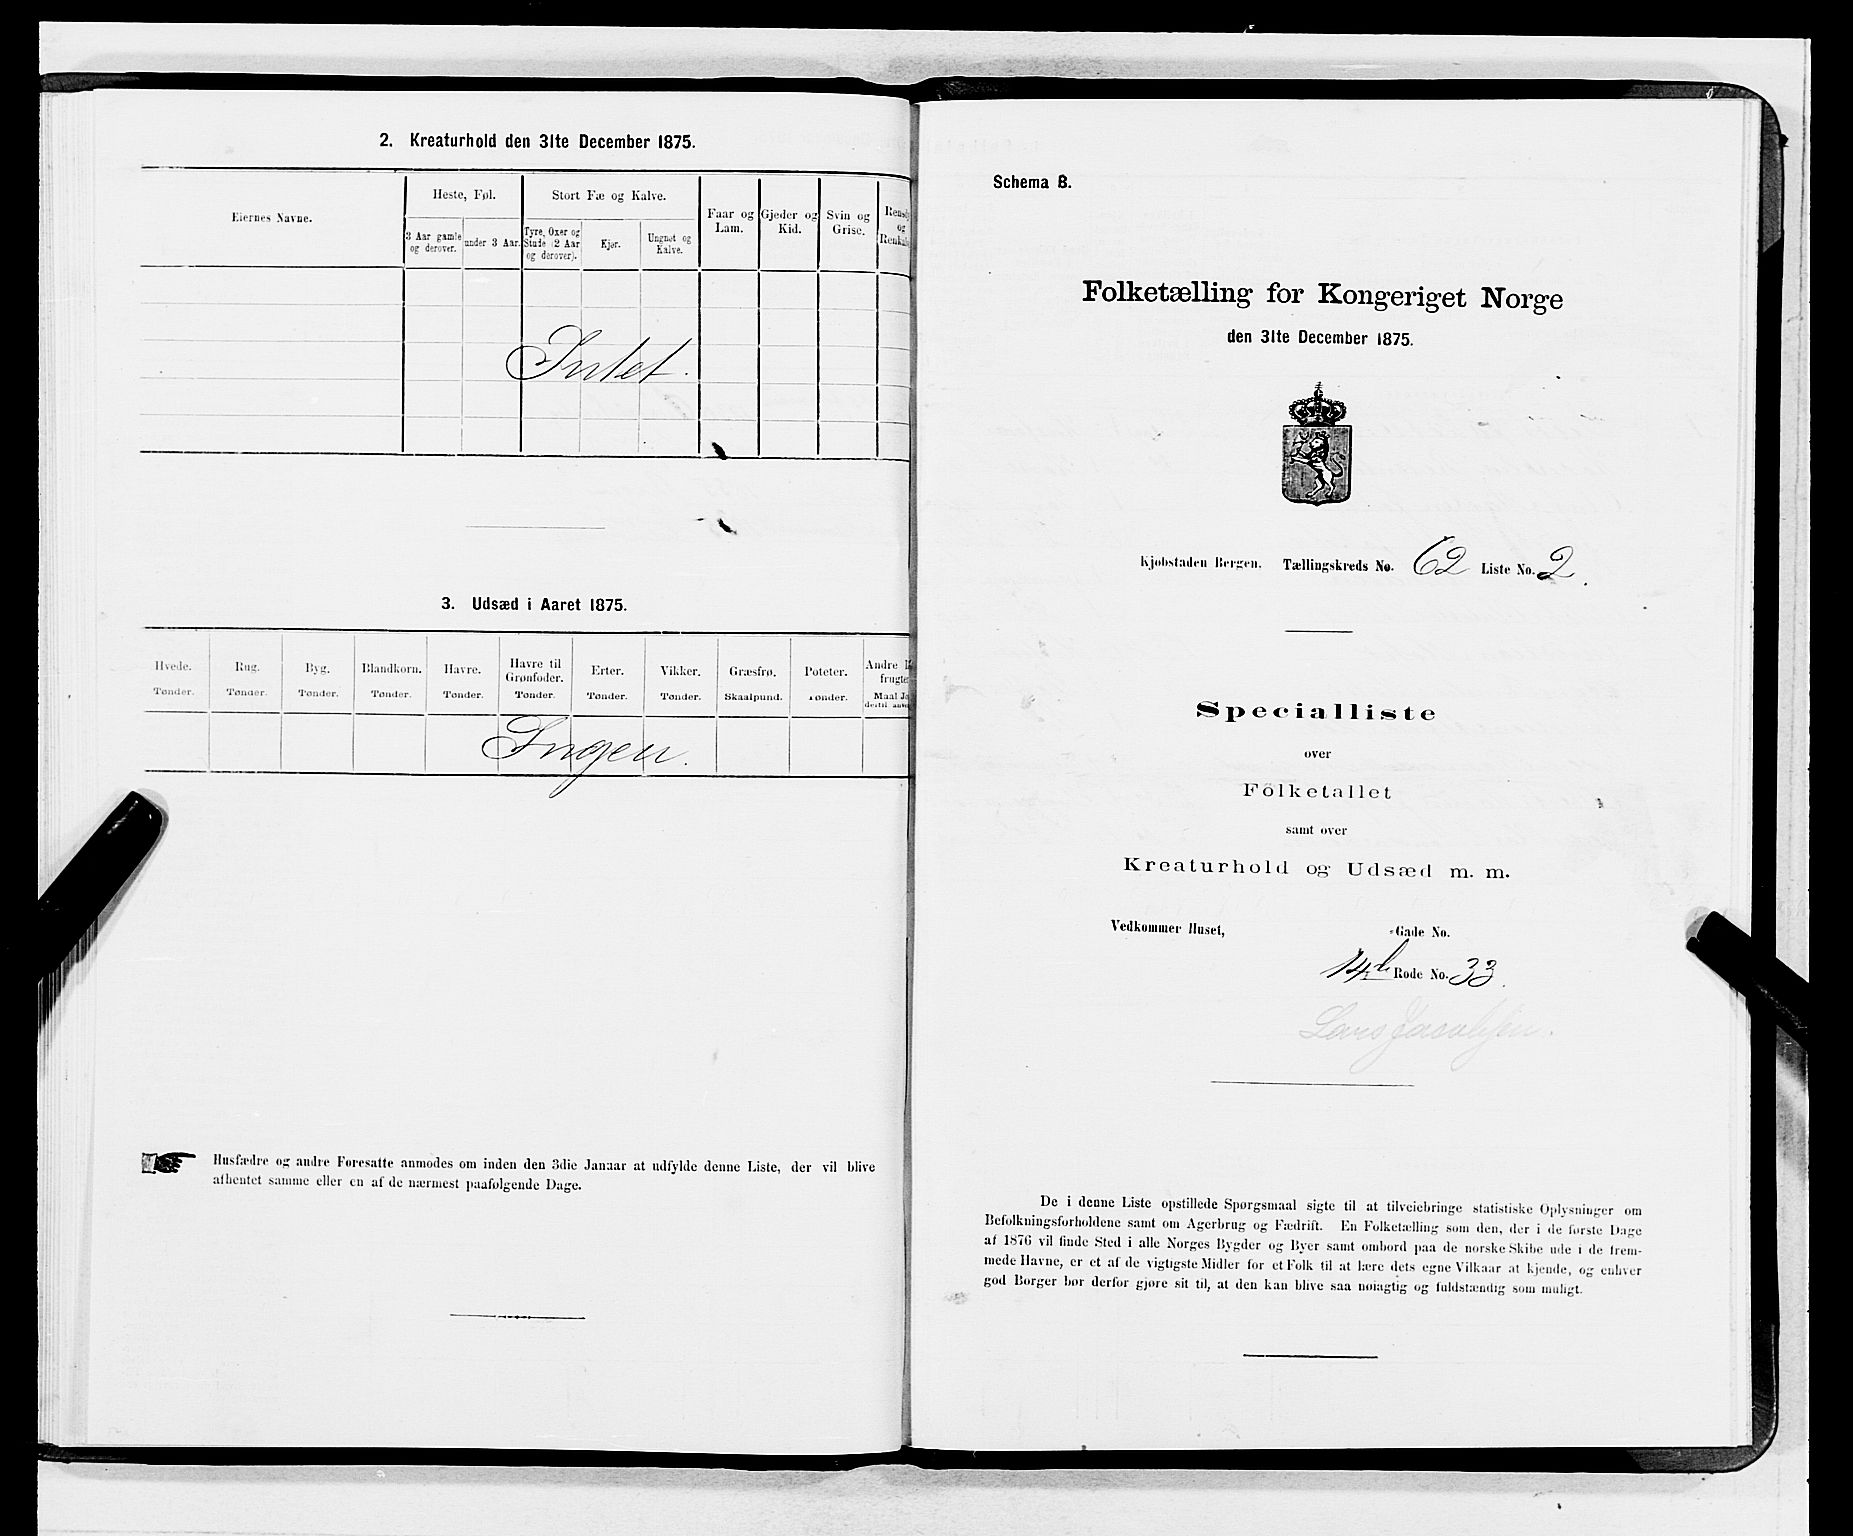 2. Kreaturhold den 31te December 1875.
Eiernes Navne.
Heste, Føl.
3 Aar gamle og derover.
under 3 Aar.
Stort Fæ og Kalve.
Tyre, Oxer og Stude (2 Aar og derover).
Kjør.
Ungnøt og Kalve.
Faar og Lam.
Gjeder og Kid.
Svin og Grise.
Rensdy
og
Renkalv
Intet.
3. Udsæd i Aaret 1875.
Hvede. Rug. Byg. Blandkorn. Havre. Havre til Grønfoder. Erter. Vikker. Græsfrø. Poteter. Andre
frugter
Tønder. Tønder. Tønder. Tønder. Tønder. Tønder. Tønder. Tønder. Skaalpund. Tønder. Maal Jo
destil anv
Ingen.
Husfædre og andre Foresatte anmodes om inden den 3die Januar at udfylde denne Liste, der vil blive
afhentet samme eller en af de nærmest paafølgende Dage.
Schema B.
Folketælling for Kongeriget Norge
den 31te December 1875.
Kjøbstaden Bergen. Tællingskreds No. 62 Liste No. 2.
Specialliste
over
Folketallet
samt over
Kreaturhold og Udsæd m. m.
Vedkommer Huset, -Gade No.
14b Rode No. 33.
Lars Jacobsen.
De i denne Liste opstillede Spørgsmaal sigte til at tilveiebringe statistiske Oplysninger om
Befolkningsforholdene samt om Agerbrug og Fædrift. En Folketælling som den, der i de første Dage
af 1876 vil finde Sted i alle Norges Bygder og Byer samt ombord paa de norske Skibe ude i de frem-
mede Havne, er et af de vigtigste Midler for et Folk til at lære dets egne Vilkaar at kjende, og enhver
god Borger bør derfor gjøre sit til, at den kan blive saa nøiagtig og fuldstændig som muligt.